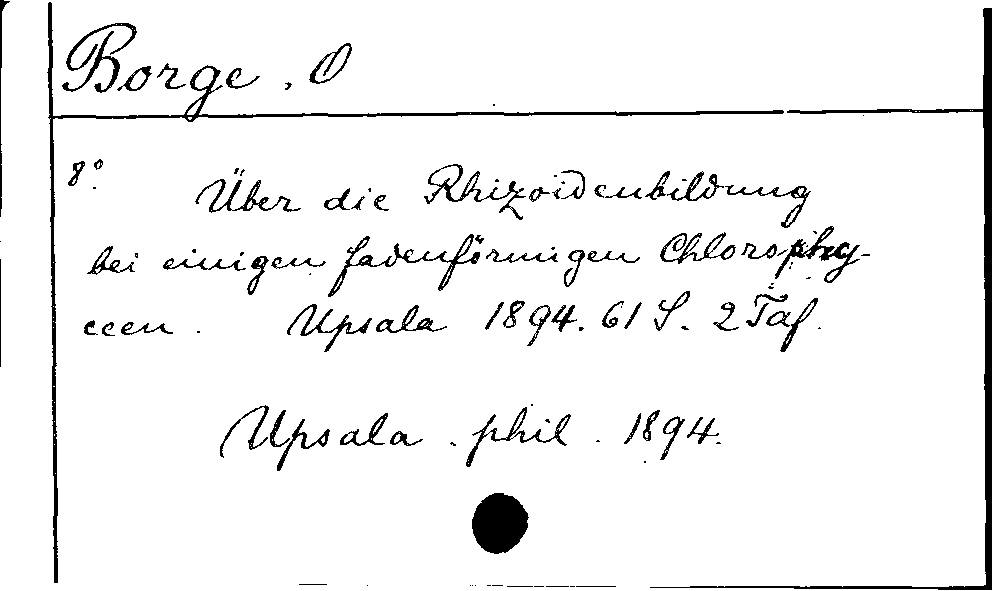 Borge, O
8°. Über die Rhizoidenbildung
bei einigen fadenförmigen Chlorophy-
ceen. Upsala 1894. 61 S. 2 Taf.
Upsala. phil. 1894.